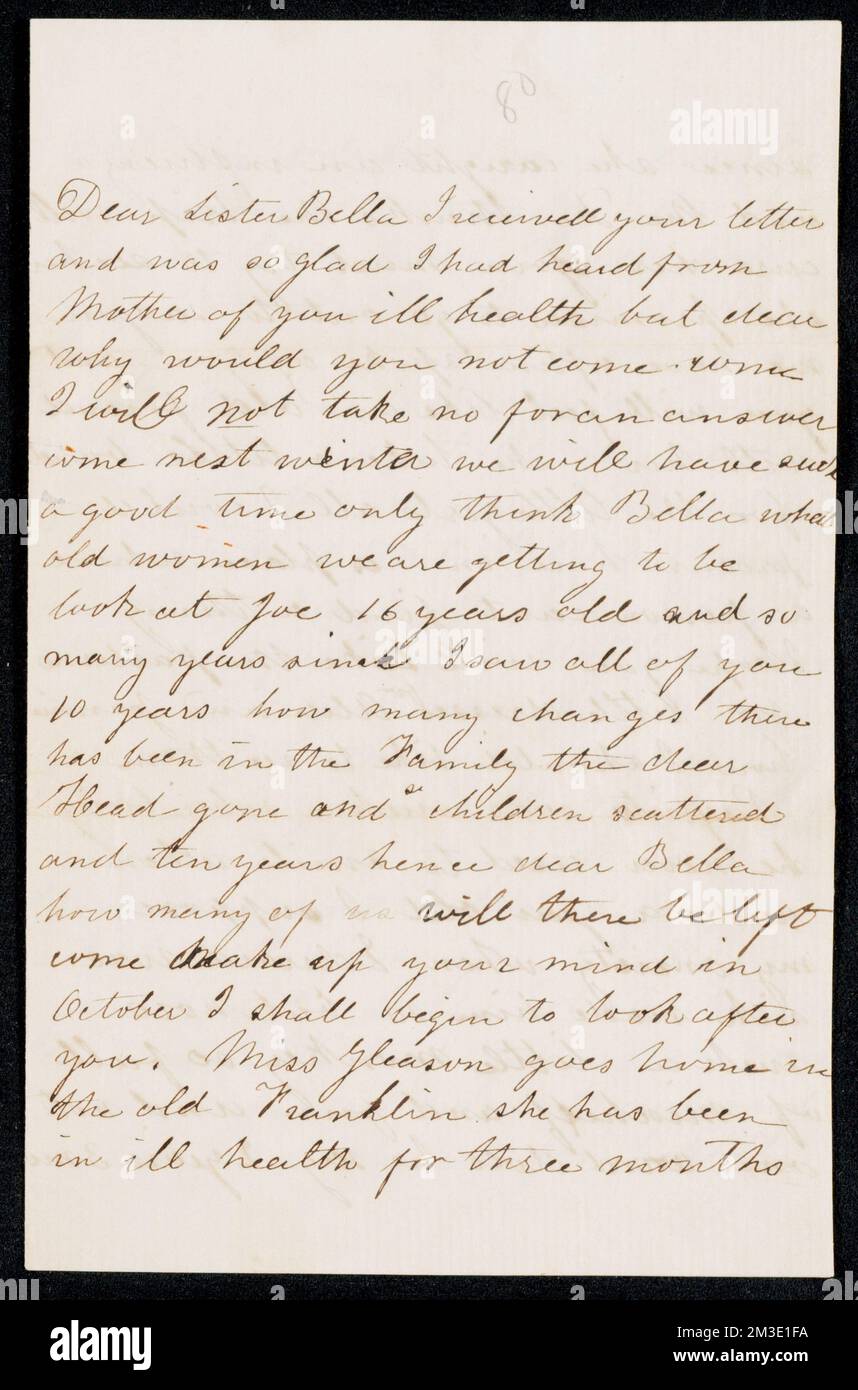 80
Dear Sister Bella I receivell your letter
and was so glad I had heard from
Mother of you ill health but dear
why would you not come
I will not take no for an answer
come nest winter we will have such
a good time only think Bella what
old women we are getting to be
look at Joe 16 years old and so
many years since I saw all of you
10 years how many changes there
has been in the Family the dear
Head gone and se children scattered
and ten years hence dear Bella
how many of us will there be left
come make up your mind in
October I shall begin to look after
you. Miss Gleason goes home in
the old Franklin she has been
in ill health for three months
alamy
Image ID: 2M3E1FA
www.alamy.com